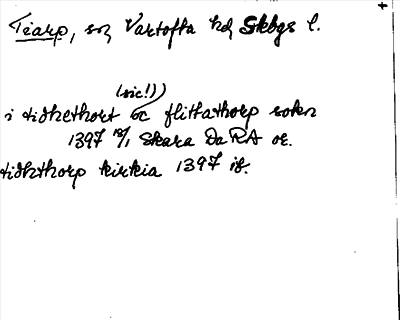 Tiarp, sn Vartofta hd Skbgs l.
(sic!)
i tidhethort oc flittathorp sokn
1397 19/1 Skara DaRA or.
tidhthorp kirkia 1397 if.